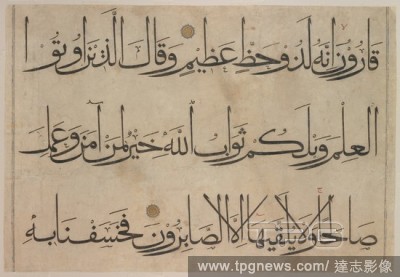 قارون إنه لذو حظ عظيم وقال الذين أوتوا
العلم ويلكم ثواب الله خير لمن آمن وعمل
صالحا ولا يلقيها إلا الصابرون فخسفنا به
www.tpgnews.com/ 達志影像